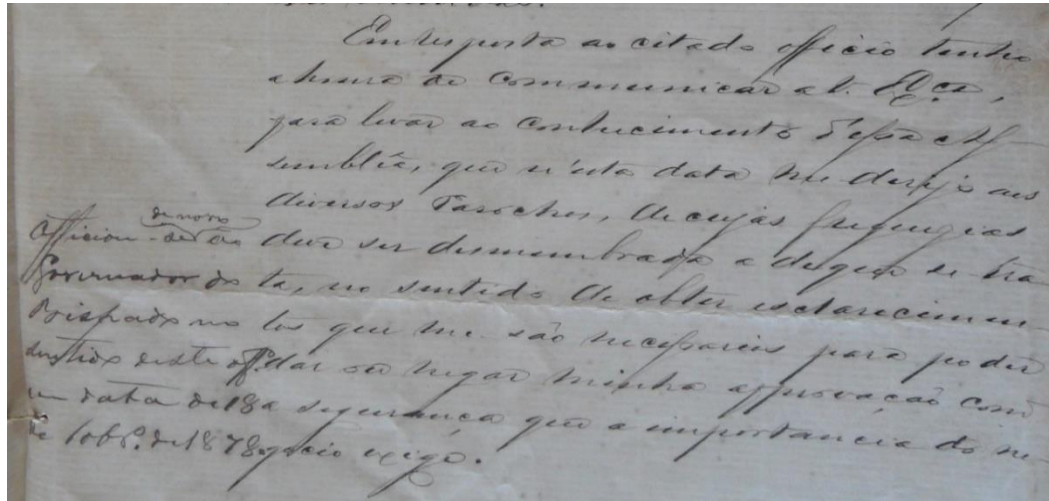 Em resposta ao citado officio tenho
a honra de communicar a V. Exca,
para levar ao conhecimento d'essa As-
semblêa, que n'esta data me derijo aos
diversos Parochos, de cujas freguezias
deve ser desmembrada a de que se tra-
ta, no sentido de obter esclarecimen-
tos que me são necessarios para poder
dar ou negar minha approvação com
a segurança que a importancia do ne-
gocio exige.
de novo
Officiou-se ao
Governador do
Bispado no
sentido deste off.
em data de 18
de 1878